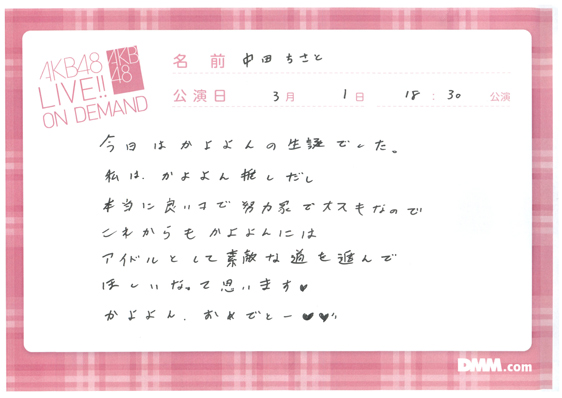 AKB48
LIVE!!
ON DEMAND
AKB
48
名 前 中田ちさと
公演日 3月 1日 18:30 公演
今日はかよよんの生誕でした。
私は、かよよん推しだし
本当に良いコで努力家で大スキなので
これからもかよよんには
アイドルとして素敵な道を進んで
ほしいなって思います♥
かよよん、おめでとー♥♥
DMM.com